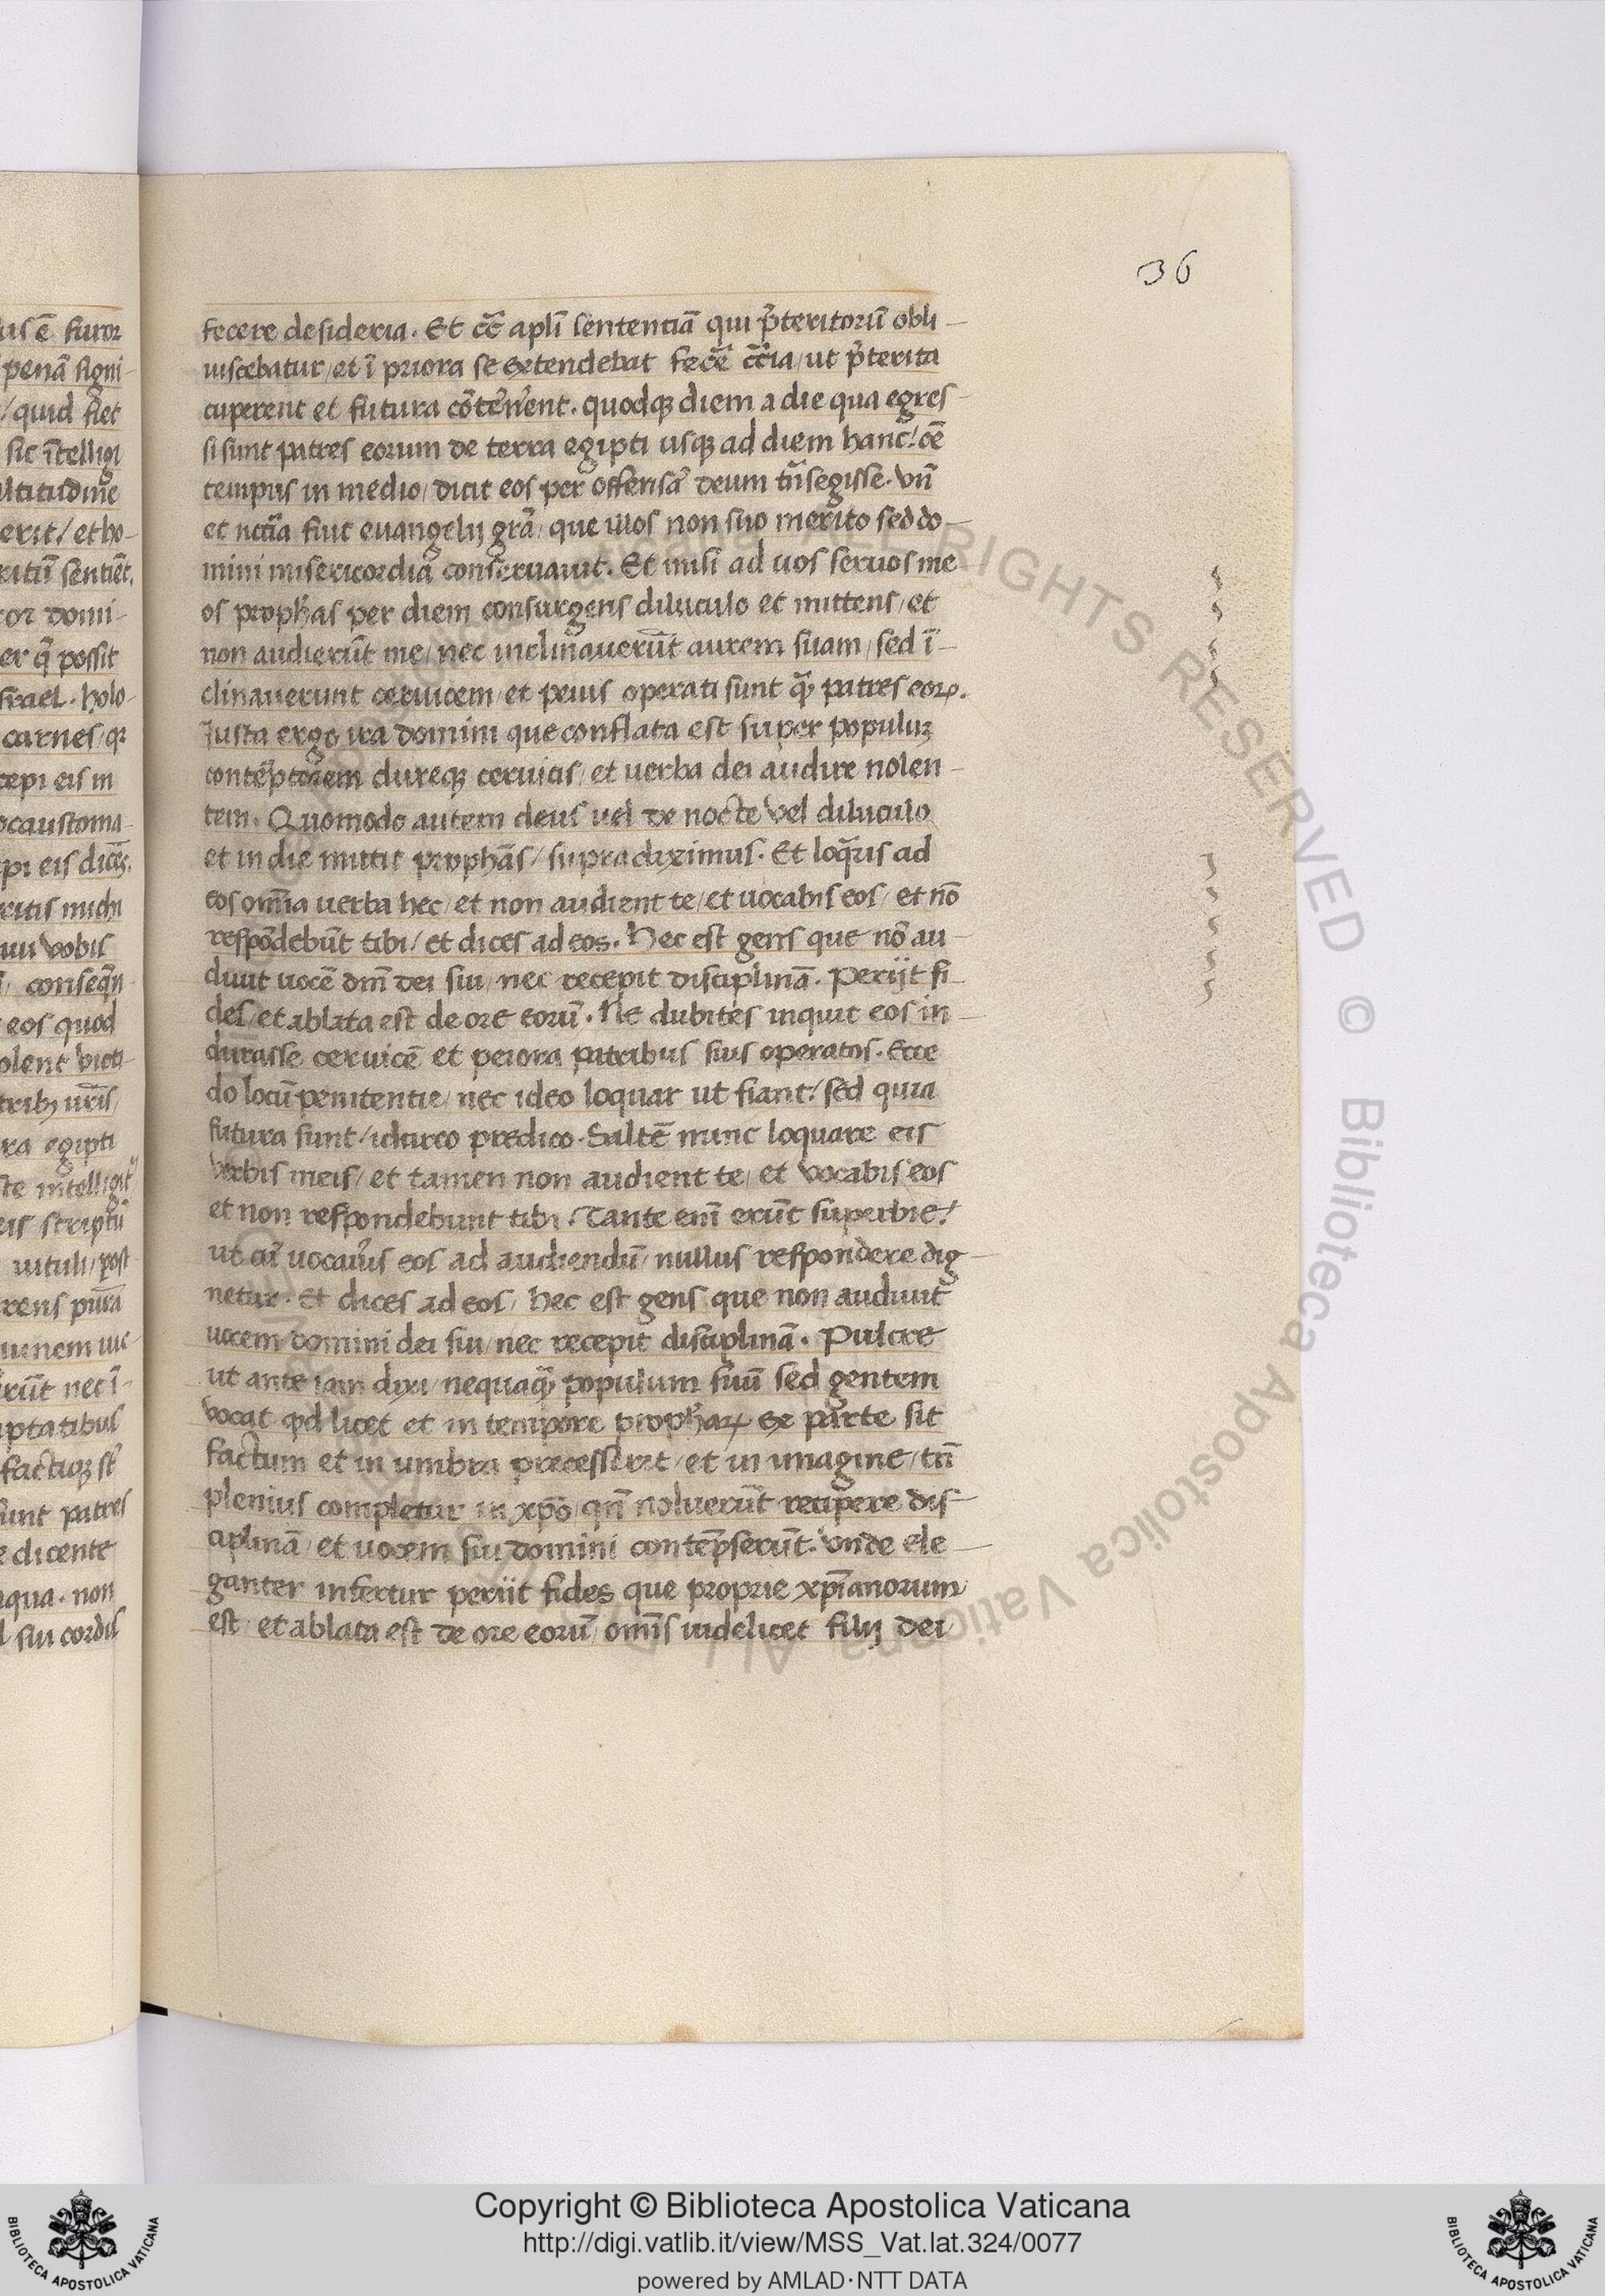 36
fecere desideria. Et cc̄ apl̄i sententiā qui p̄teritorū obli-
uiscebatur/ et ī priora se extendebat fecē cc̄ia/ ut p̄terita
cuperent et futura cōtēn̄ent. quodqꝫ diem a die qua egres-
si sunt patres eorum de terra egipti usqꝫ ad diem hanc/ cē
tempus in medio/ dicit eos per offensā deum tn̄segisse. Vn̄
et nc̄cīa fuit euangelij grā/ que illos non suo merito sed do-
mini misericordia conseruauit. Et misi ad uos seruos me
os proph̄as per diem consurgens diluculo et mittens/ et
non audierūt me/ nec inclinauerūt aurem suam/ sed ī-
clinauerunt ceruicem/ et peius operati sunt qꝫ̄ patres eoꝝ.
Justa ergo ira domini que conflata est super populuꝫ
contēptorem dureqꝫ ceruicis/ et uerba dei audire nolen-
tem. Quomodo autem deus uel de nocte vel diluculo
et in die mittit proph̄as/ supra diximus. Et loq̄ris ad
eos om̄ia uerba hec/ et non audient te/ et uocabis eos/ et nō
respōdebūt tibi/ et dices ad eos. Hec est gens que nō au-
diuit uocē dn̄i dei sui/ nec recepit disciplinā. Perijt fi-
des/ et ablata est de ore eorū. Ne dubites inquit eos in-
durasse ceruicē et peiora patribus suis operatos. Ecce
do locū penitentie/ nec ideo loquar ut fiant/ sed quia
futura sunt/ idcirco predico. Saltē nunc loquare eis
verbis meis/ et tamen non audient te/ et vocabis eos
et non respondebunt tibi. Tante eni̅ erūt superbie/
ut cū uocaūis eos ad audiendū/ nullus respondere dig-
netur. Et dices ad eos/ hec est gens que non audiuit
uocem domini dei sui/ nec recepit disciplinā. Pulcre
ut ante iam dixi/ nequaqꝫ̄ populum suū sed gentem
vocat qd licet et in tempore proph̄aꝝ ex parte sit
factum et in umbra precesserit/ et in imagine/ tn̄
plenius completur in xp̄o/ qn̄ noluerūt recipere dis-
ciplinā/ et uocem sui domini contēpserūt. Vnde ele-
ganter infertur perijt fides que proprie xp̄ianorum
est/ et ablata est de ore eorū/ om̄is uidelicet filij dei
Copyright © Biblioteca Apostolica Vaticana
http://digi.vatlib.it/view/MSS_Vat.lat.324/0077
powered by AMLAD·NTT DATA